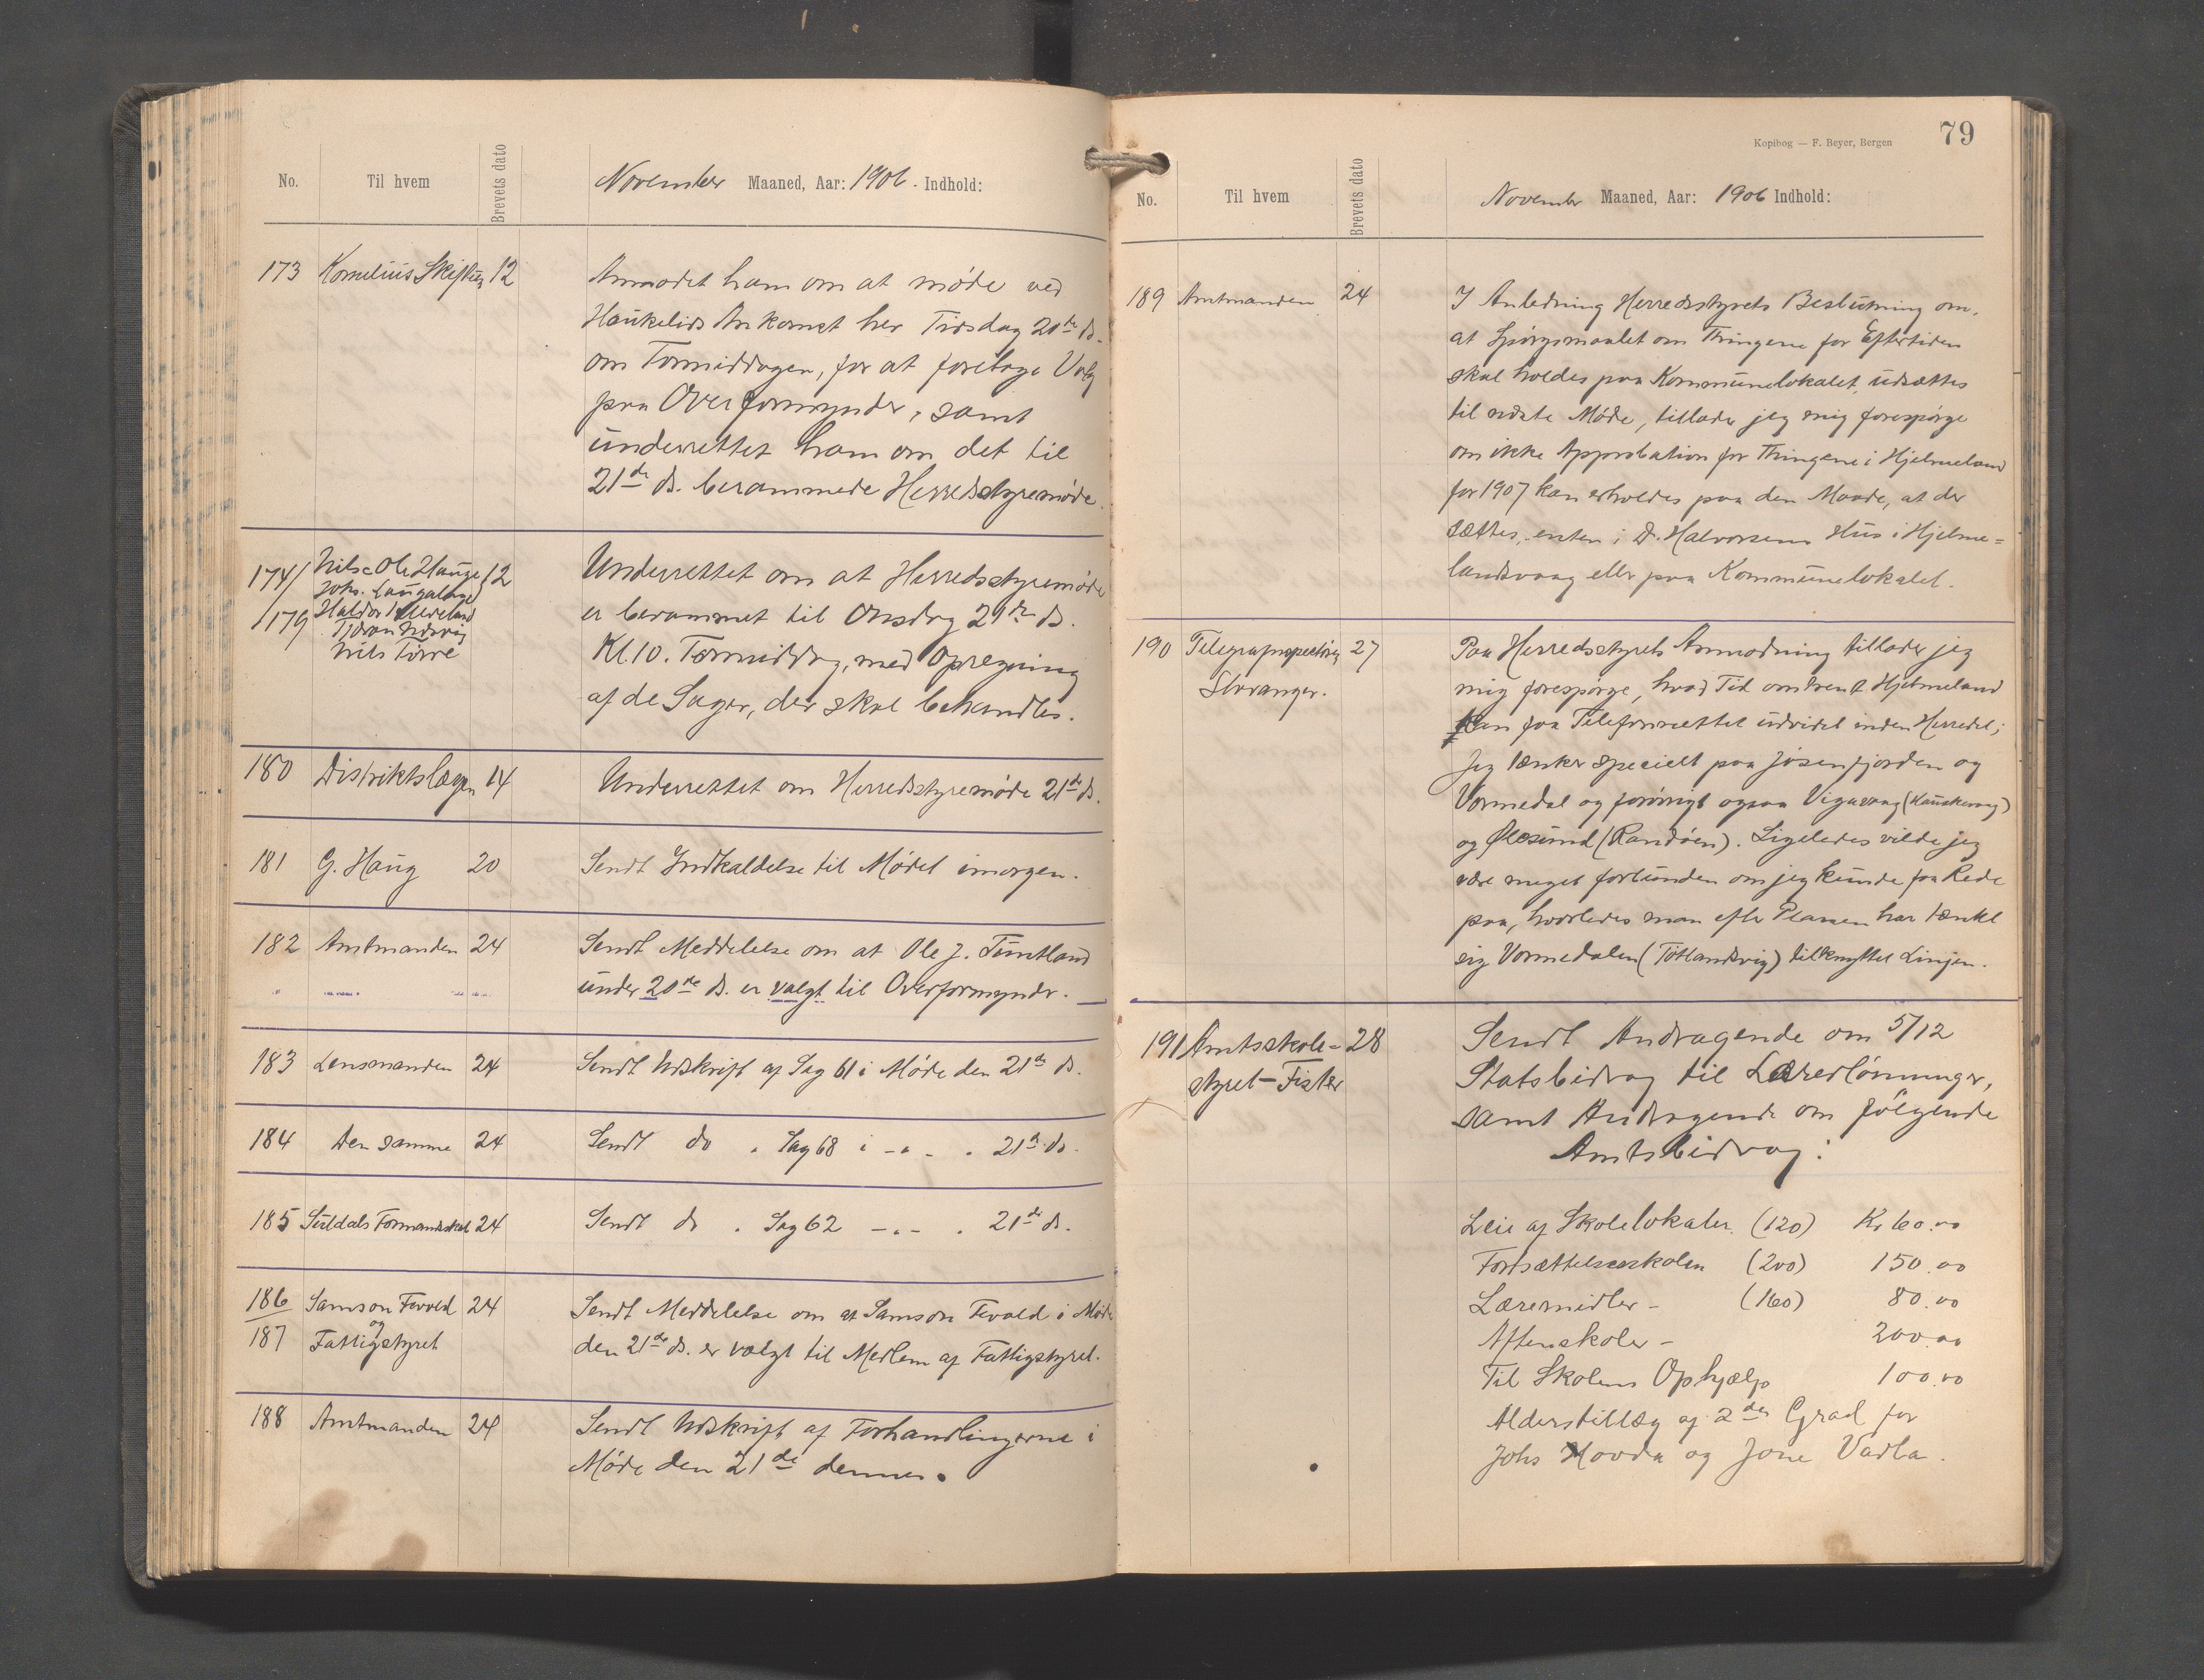 No. Til hvem Brevets dato November Maaned, Aar: 1906. Indhold:
173 Kornelius Skiftun 12 Anmodet ham om at møde ved
Haukelids Ankomst her Tirsdag 20de ds.
om Formiddagen, for at foretage Valg
paa Overformynder, samt
underrettet ham om det til
21de ds. berammede Herredsstyremøde.
174/ Nils & Ole Hauge 12 Underrettet om at Herredsstyremøde
Joh. Laugaland
/179 Haldor
er berammet til Onsdag 21de ds.
Nils Torre
Kl. 10. Formiddag, med Opregning
af de Sager, der skal behandles.
180 Distriktslægen 14 Underrettet om Herredsstyremøde 21de ds.
181 G. Haug 20 Sendt Indkaldelse til Mødet imorgen.
182 Amtmanden 24 Sendt Meddelelse om at Ole J. Tuntland
under 20de ds. er valgt til Overformynder.
183 Lensmanden 24 Sendt Udskrift af Sag 61 i Møde den 21de ds.
184 Den samme 24 Sendt do " Sag 68 i - " - " 21de ds.
185 Suldals Formandskab 24 Sendt do " Sag 62 - " - " 21de ds.
186 Samson Fevold 24 Sendt Meddelelse om at Samson Fevold i Møde
og
187 Fattigstyret den 21de ds. er valgt til Medlem af Fattigstyret.
188 Amtmanden 24 Sendt Udskrift af Forhandlingerne i
Møde den 21de dennes.
Kopibog — F. Beyer, Bergen 79
No. Til hvem Brevets dato November Maaned, Aar: 1906 Indhold:
189 Amtmanden 24 I Anledning Herredsstyrets Beslutning om,
at Spørgsmaalet om Thingene for Eftertiden
skal holdes paa Kommunelokalet, udsættes
til næste Møde, tillader jeg mig forespørge
om ikke Approbation for Thingene i Hjelmeland
for 1907 kan erholdes paa den Maade, at der
sættes, enten i D. Halvorsens Hus i Hjelme=
landsvaag eller paa Kommunelokalet.
190 Telegrafinspectøren 27 Paa Herredsstyrets Anmodning tillader jeg
Stavanger. mig forespørge, hvad Tid omtrent Hjelmeland
kan faa Telefonnættet udvidet inden Herredet;
Jeg tænker specielt paa Jøsenfjorden og
Vormedal og forøvrigt ogsaa Vigavaag
og Ølesund (Randøen). Ligeledes vilde jeg
være meget forbunden om jeg kunde faa Rede
paa, hvorledes man efter Planen har tænkt
sig Vormedalen (Tøtlandsvig) tilknyttet Linjen.
191 Amtsskole= 28 Sendt Andragende om 5/12
styret - Fister Statsbidrag til Lærerlønninger,
samt Andragende om følgende
Amtsbidrag:
Leie af Skolelokaler. (120) Kr 60.00
Fortsættelsesskolen (200) 150.00
Læremidler - (160) 80.00
Aftenskoler - 200.00
Til Skolens Ophjælp 100.00
Alderstillæg af 2den Grad for
Johs Hovda og Jone Vadla.